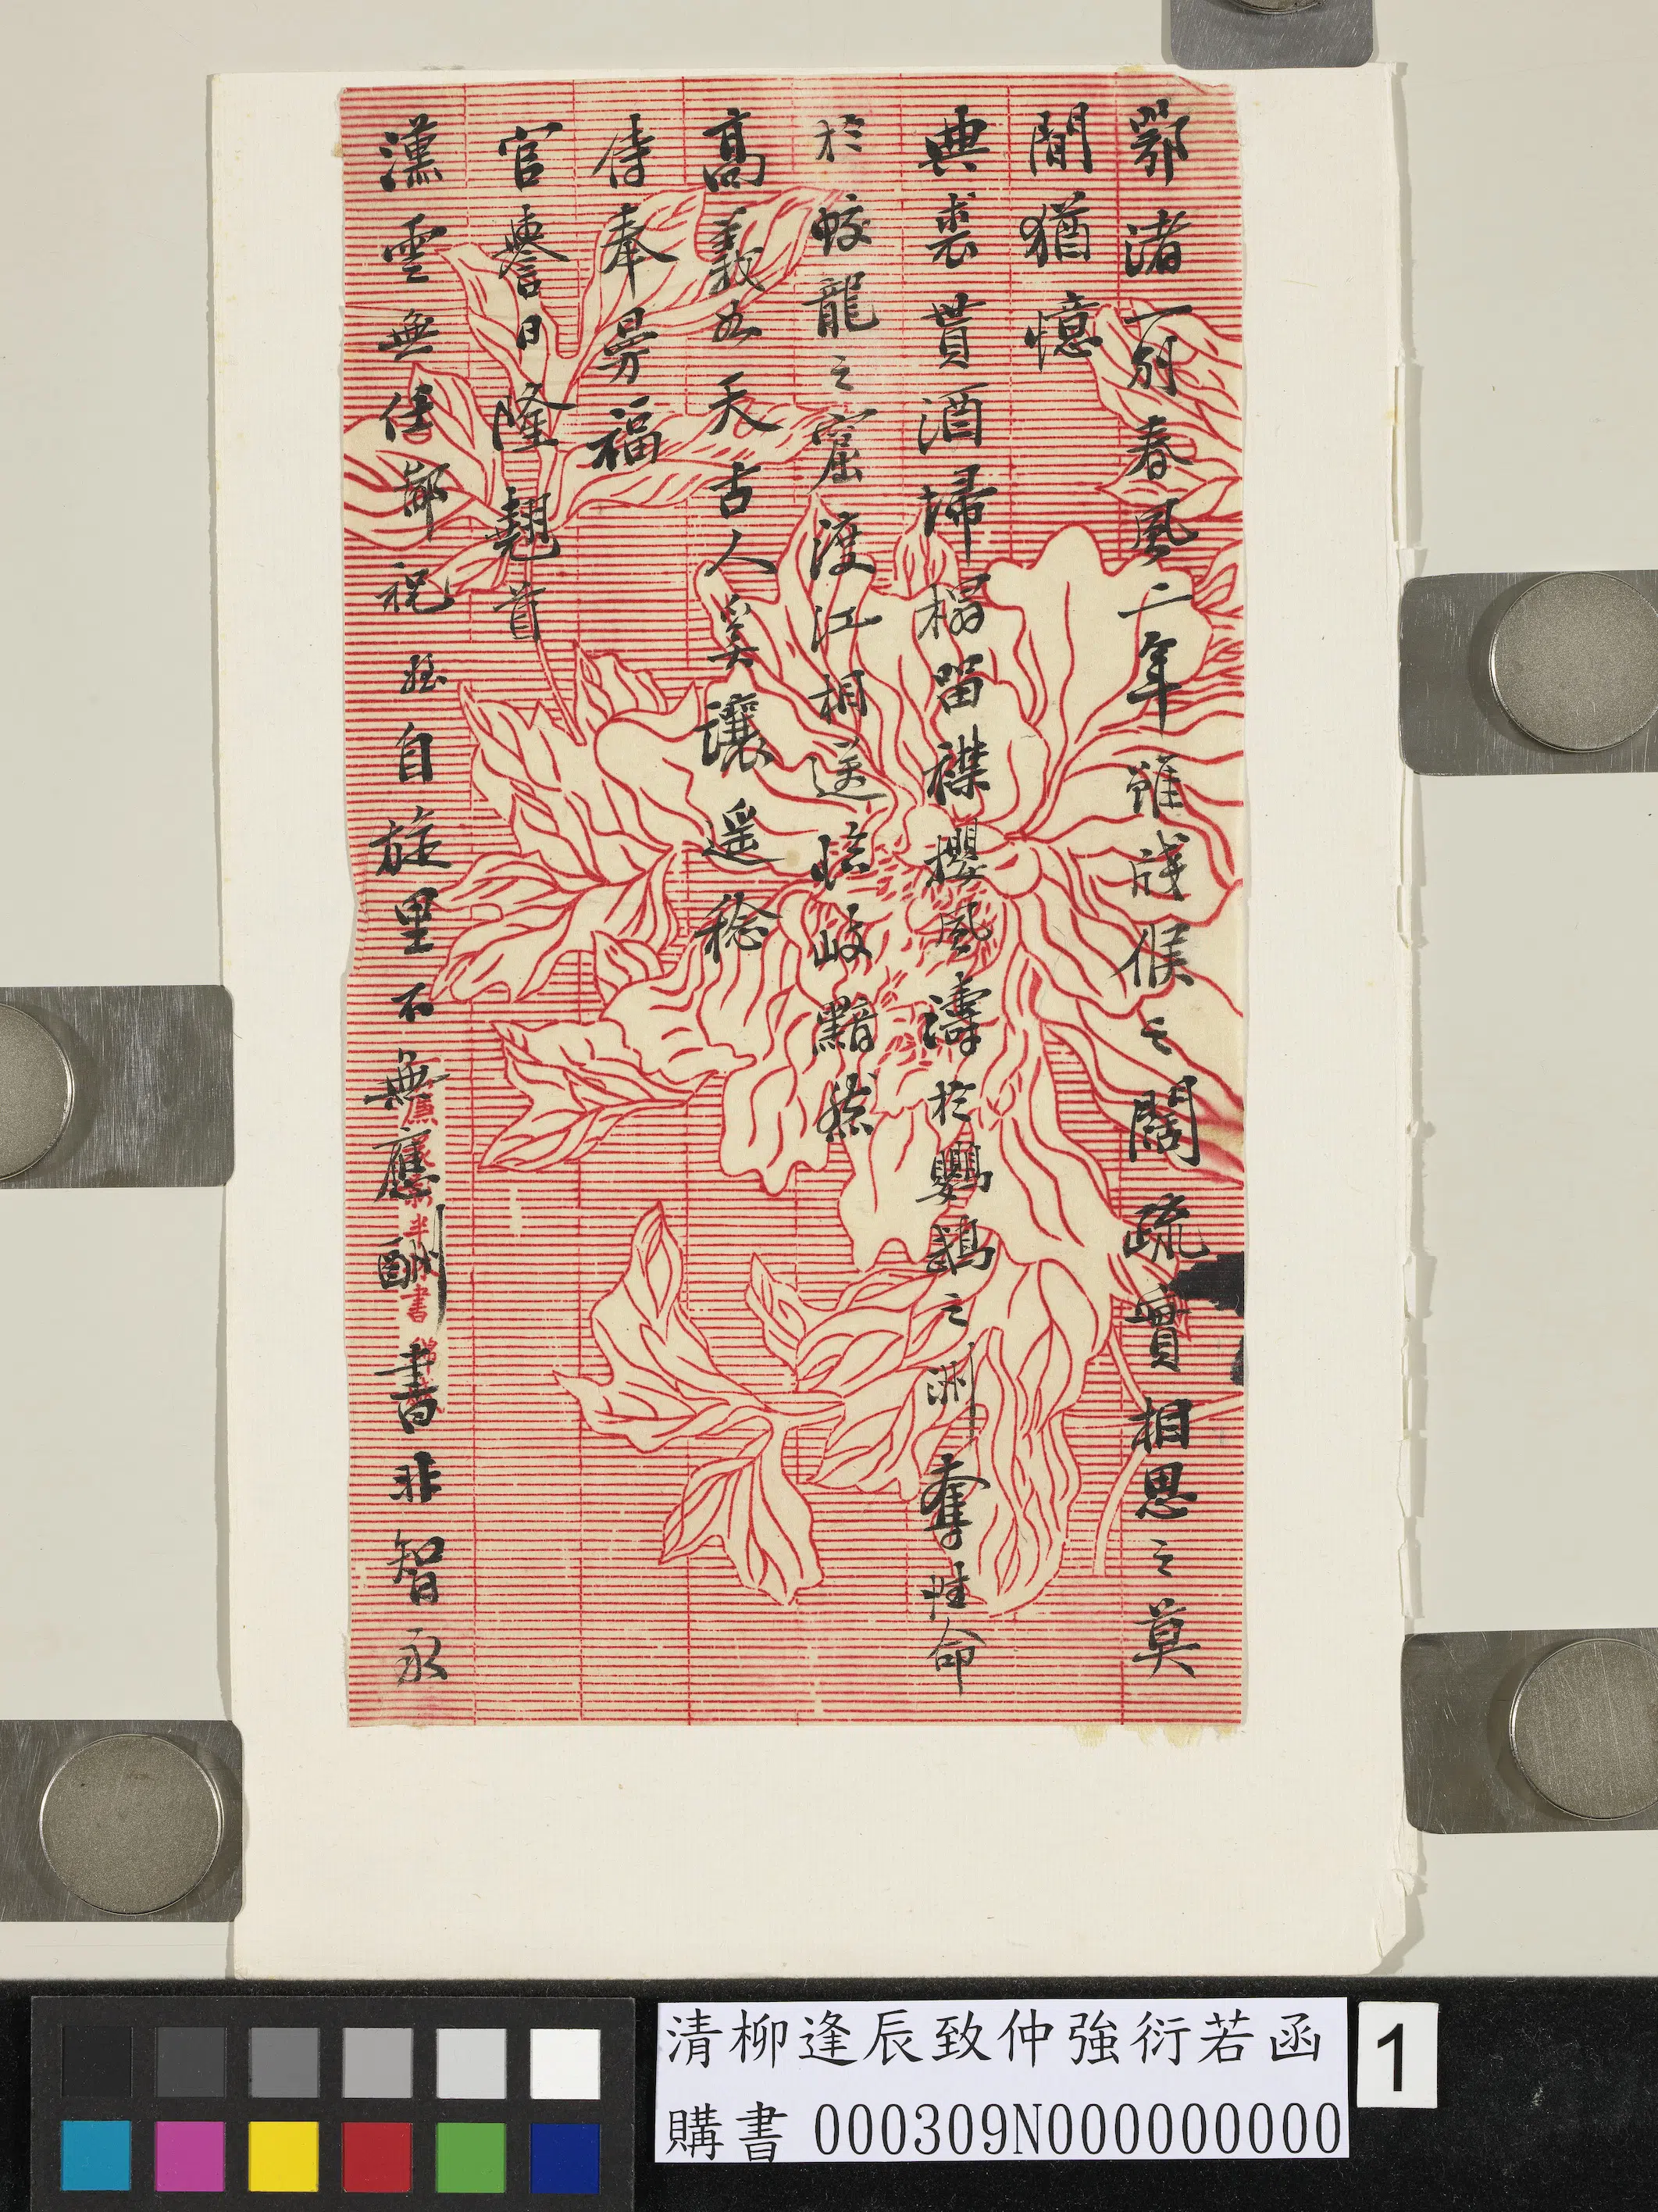 鄂渚一別春風二年雖牋候之闊疏實相思之莫
間猶憶
典裘貰酒掃榻留襟攖風濤於鸚鵡之洲奪性命
於蛟龍之窟渡江相送臨岐黯然
高義如天古人奚讓遥稔
侍奉曼福
官譽日隆翹首
漢雲無任鄙祝姪自旋里不無應酬書非智永
清柳逢辰致仲強衍若函
購書 000309N000000000
1